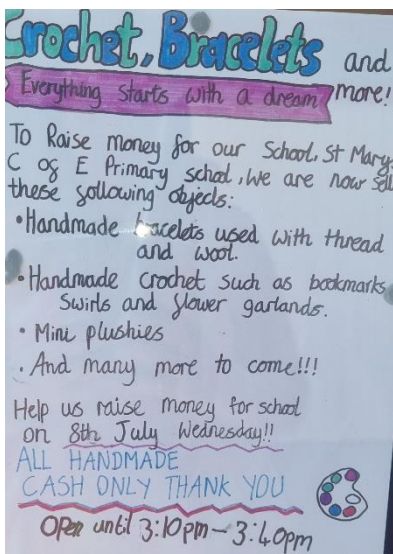 Crochet, Bracelets and
more!
Everything starts with a dream
To Raise money for our School, St Mary,
C of E Primary school, We are now sell
these following objects:
• Handmade bracelets used with thread
and wool.
• Handmade crochet such as bookmarks
Swirls and flower garlands.
• Mini plushies
• And many more to come!!!
Help us raise money for school
on 8th July Wednesday!!
ALL HANDMADE
CASH ONLY THANK YOU
Open until 3:10pm - 3:40pm